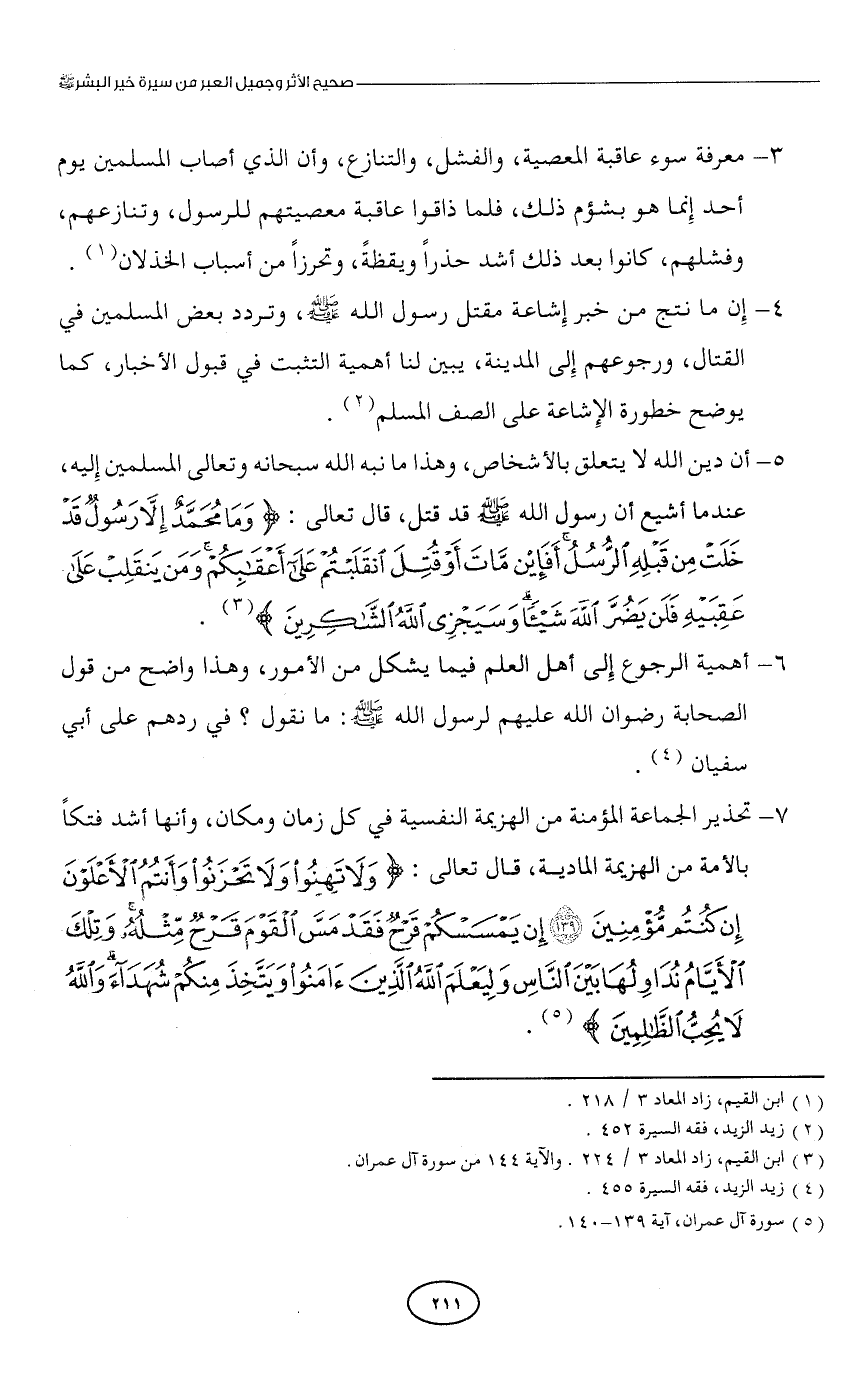 صحيح الأثر وجميل العبر من سيرة خير البشر ﷺ
٣- معرفة سوء عاقبة المعصية، والفشل، والتنازع، وأن الذي أصاب المسلمين يوم
أحد إنما هو بشؤم ذلك، فلما ذاقوا عاقبة معصيتهم للرسول، وتنازعهم،
وفشلهم، كانوا بعد ذلك أشد حذراً ويقظةً، وتحرزاً من أسباب الخذلان(١) .
٤- إن ما نتج من خبر إشاعة مقتل رسول الله ﷺ، وتردد بعض المسلمين في
القتال، ورجوعهم إلى المدينة، يبين لنا أهمية التثبت في قبول الأخبار، كما
يوضح خطورة الإشاعة على الصف المسلم(٢) .
٥- أن دين الله لا يتعلق بالأشخاص، وهذا ما نبه الله سبحانه وتعالى المسلمين إليه،
عندما أشيع أن رسول الله ﷺ قد قتل، قال تعالى : ﴿ وَمَا مُحَمَّدٌ إِلَّا رَسُولٌ قَدْ
خَلَتْ مِن قَبْلِهِ ٱلرُّسُلُ ۚ أَفَإِيْن مَّاتَ أَوْ قُتِلَ ٱنقَلَبْتُمْ عَلَىٰٓ أَعْقَٰبِكُمْ ۚ وَمَن يَنقَلِبْ عَلَىٰ
عَقِبَيْهِ فَلَن يَضُرَّ ٱللَّهَ شَيْـًٔا ۗ وَسَيَجْزِى ٱللَّهُ ٱلشَّٰكِرِينَ ﴾(٣) .
٦- أهمية الرجوع إلى أهل العلم فيما يشكل من الأمور، وهذا واضح من قول
الصحابة رضوان الله عليهم لرسول الله ﷺ : ما نقول ؟ في ردهم على أبي
سفيان (٤) .
٧- تحذير الجماعة المؤمنة من الهزيمة النفسية في كل زمان ومكان، وأنها أشد فتكاً
بالأمة من الهزيمة المادية، قال تعالى : ﴿ وَلَا تَهِنُوا۟ وَلَا تَحْزَنُوا۟ وَأَنتُمُ ٱلْأَعْلَوْنَ
إِن كُنتُم مُّؤْمِنِينَ ١٣٩ إِن يَمْسَسْكُمْ قَرْحٌ فَقَدْ مَسَّ ٱلْقَوْمَ قَرْحٌ مِّثْلُهُۥ ۚ وَتِلْكَ
ٱلْأَيَّامُ نُدَاوِلُهَا بَيْنَ ٱلنَّاسِ وَلِيَعْلَمَ ٱللَّهُ ٱلَّذِينَ ءَامَنُوا۟ وَيَتَّخِذَ مِنكُمْ شُهَدَآءَ ۗ وَٱللَّهُ
لَا يُحِبُّ ٱلظَّٰلِمِينَ ﴾ (٥) .
(١) ابن القيم، زاد المعاد ٣ / ٢١٨ .
(٢) زيد الزيد، فقه السيرة ٤٥٢ .
(٣) ابن القيم، زاد المعاد ٣ / ٢٢٤ . والآية ١٤٤ من سورة آل عمران.
(٤) زيد الزيد، فقه السيرة ٤٥٥ .
(٥) سورة آل عمران، آية ١٣٩-١٤٠.
٢١١